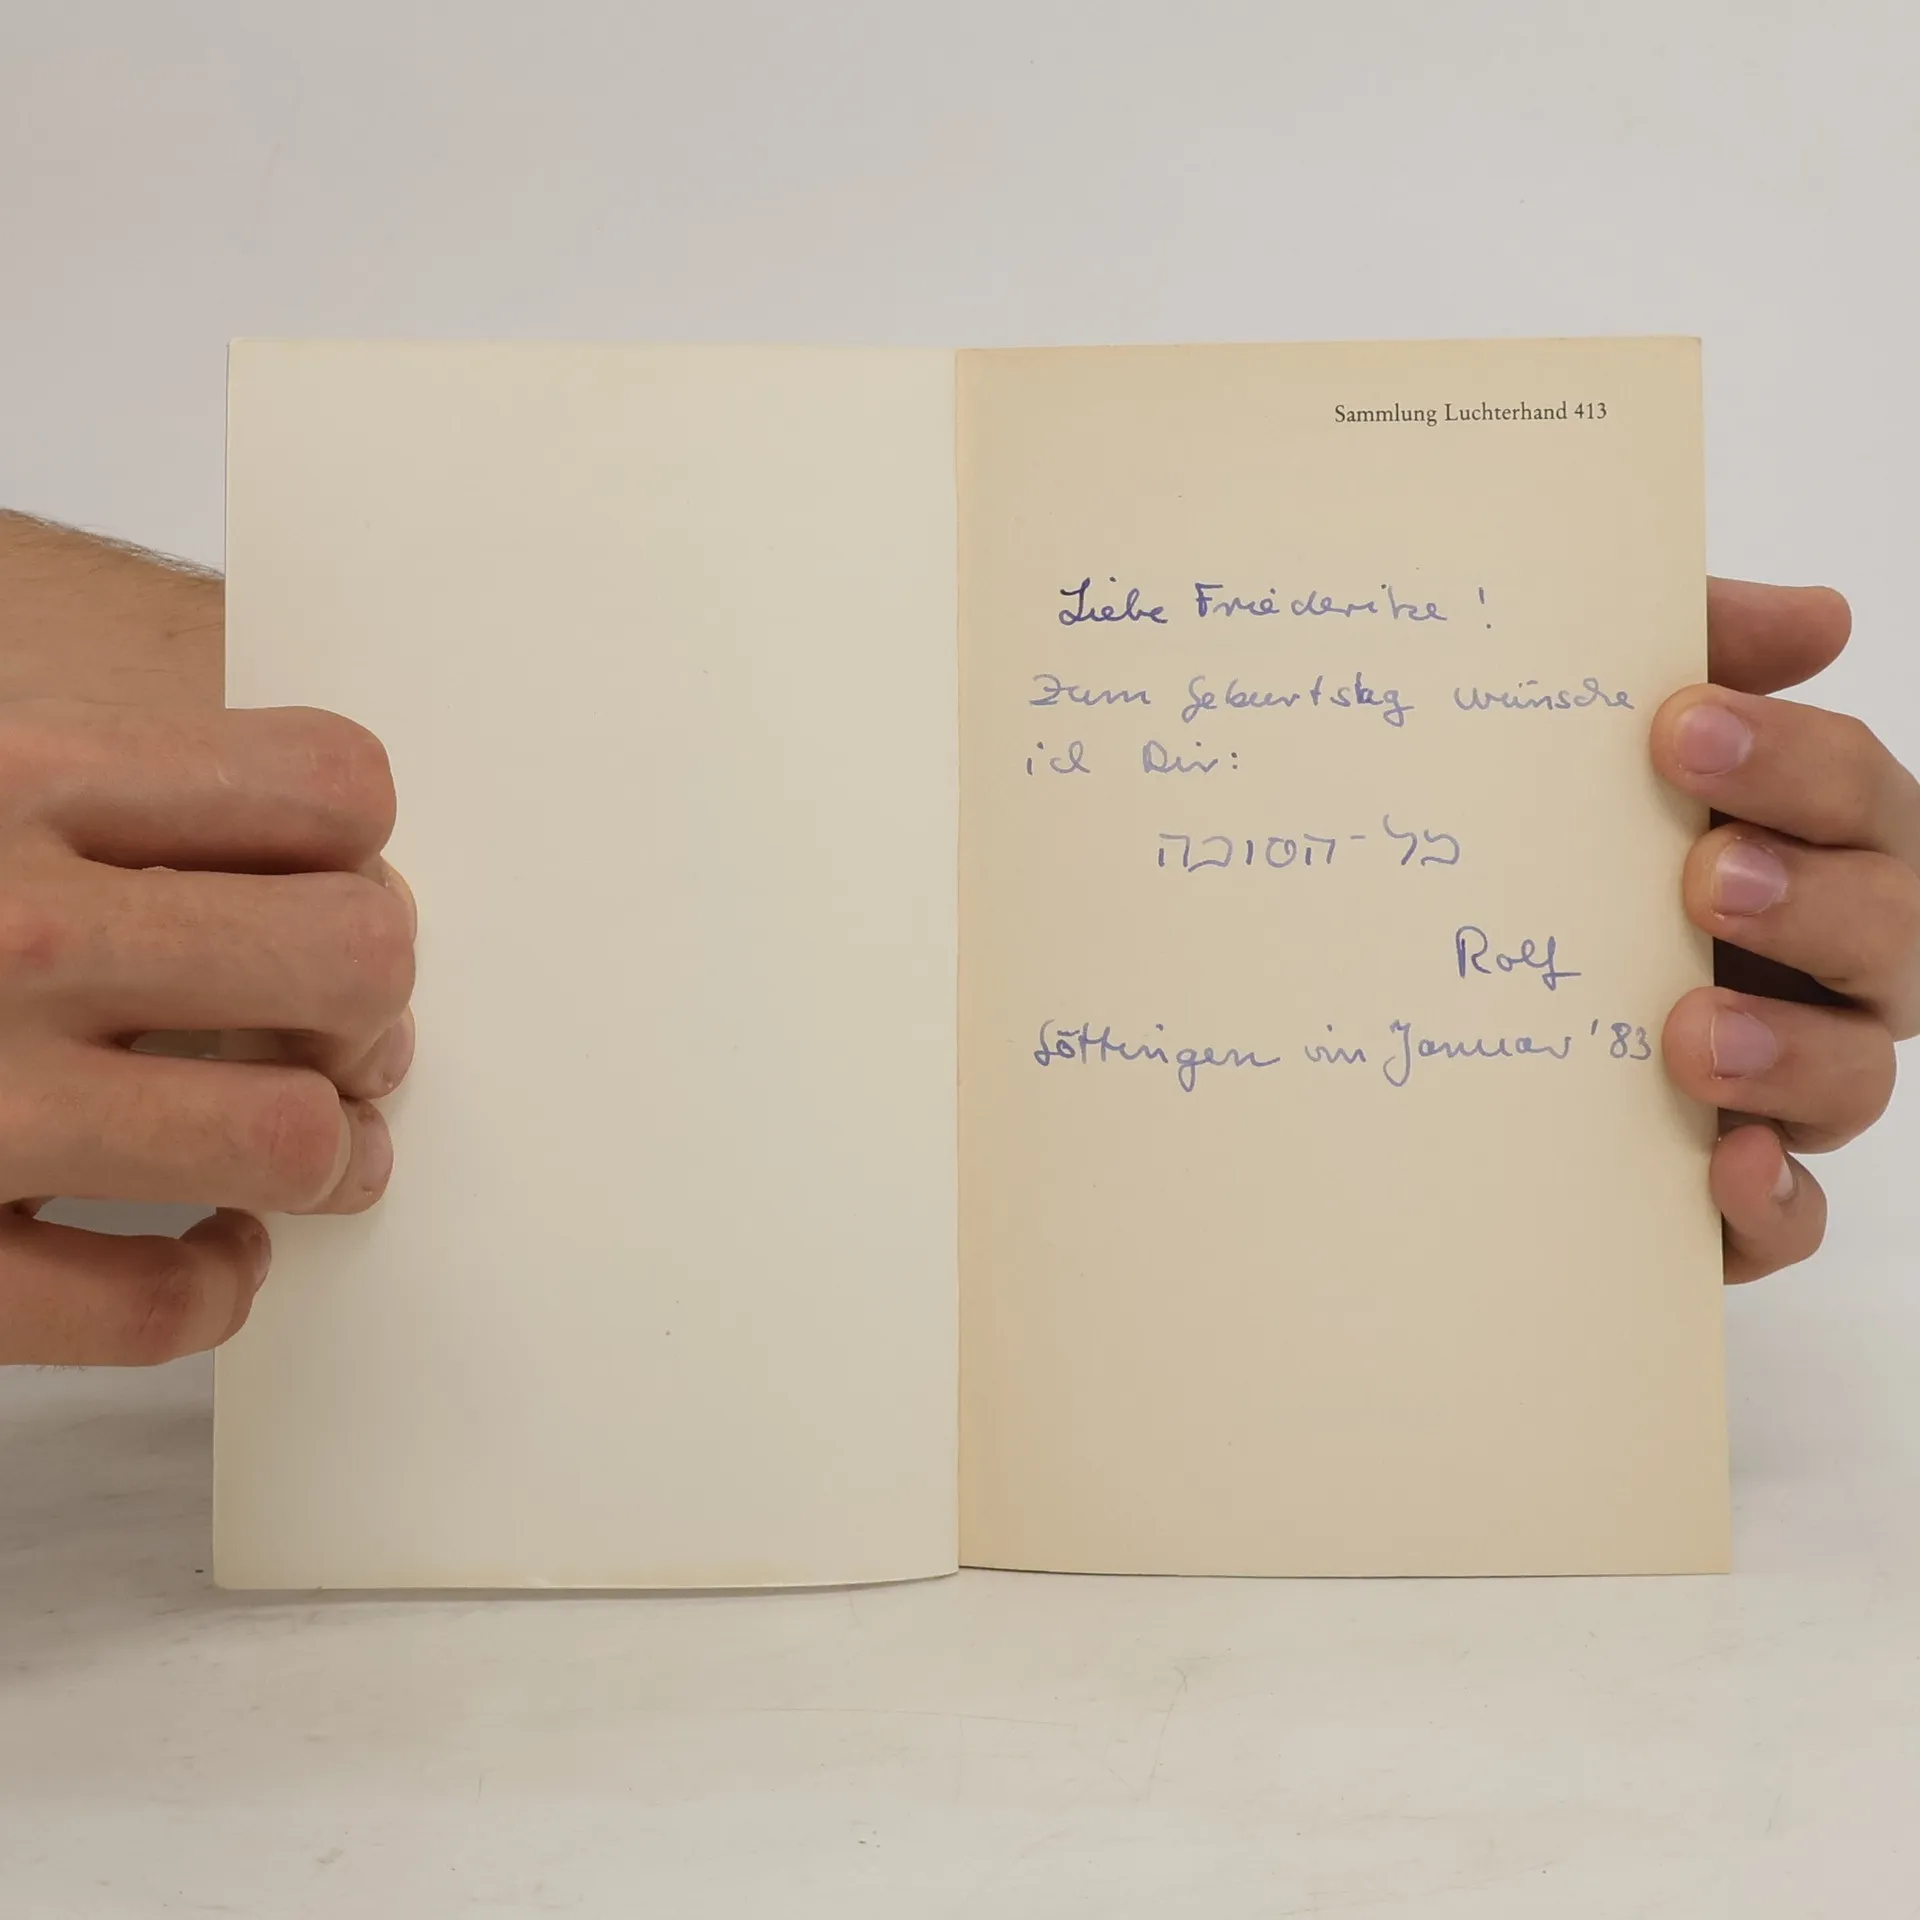 Sammlung Luchterhand 413
Liebe Friederike !
Zum Geburtstag wünsche
ich Dir:
כל-הטובה
Rolf
Göttingen im Januar '83